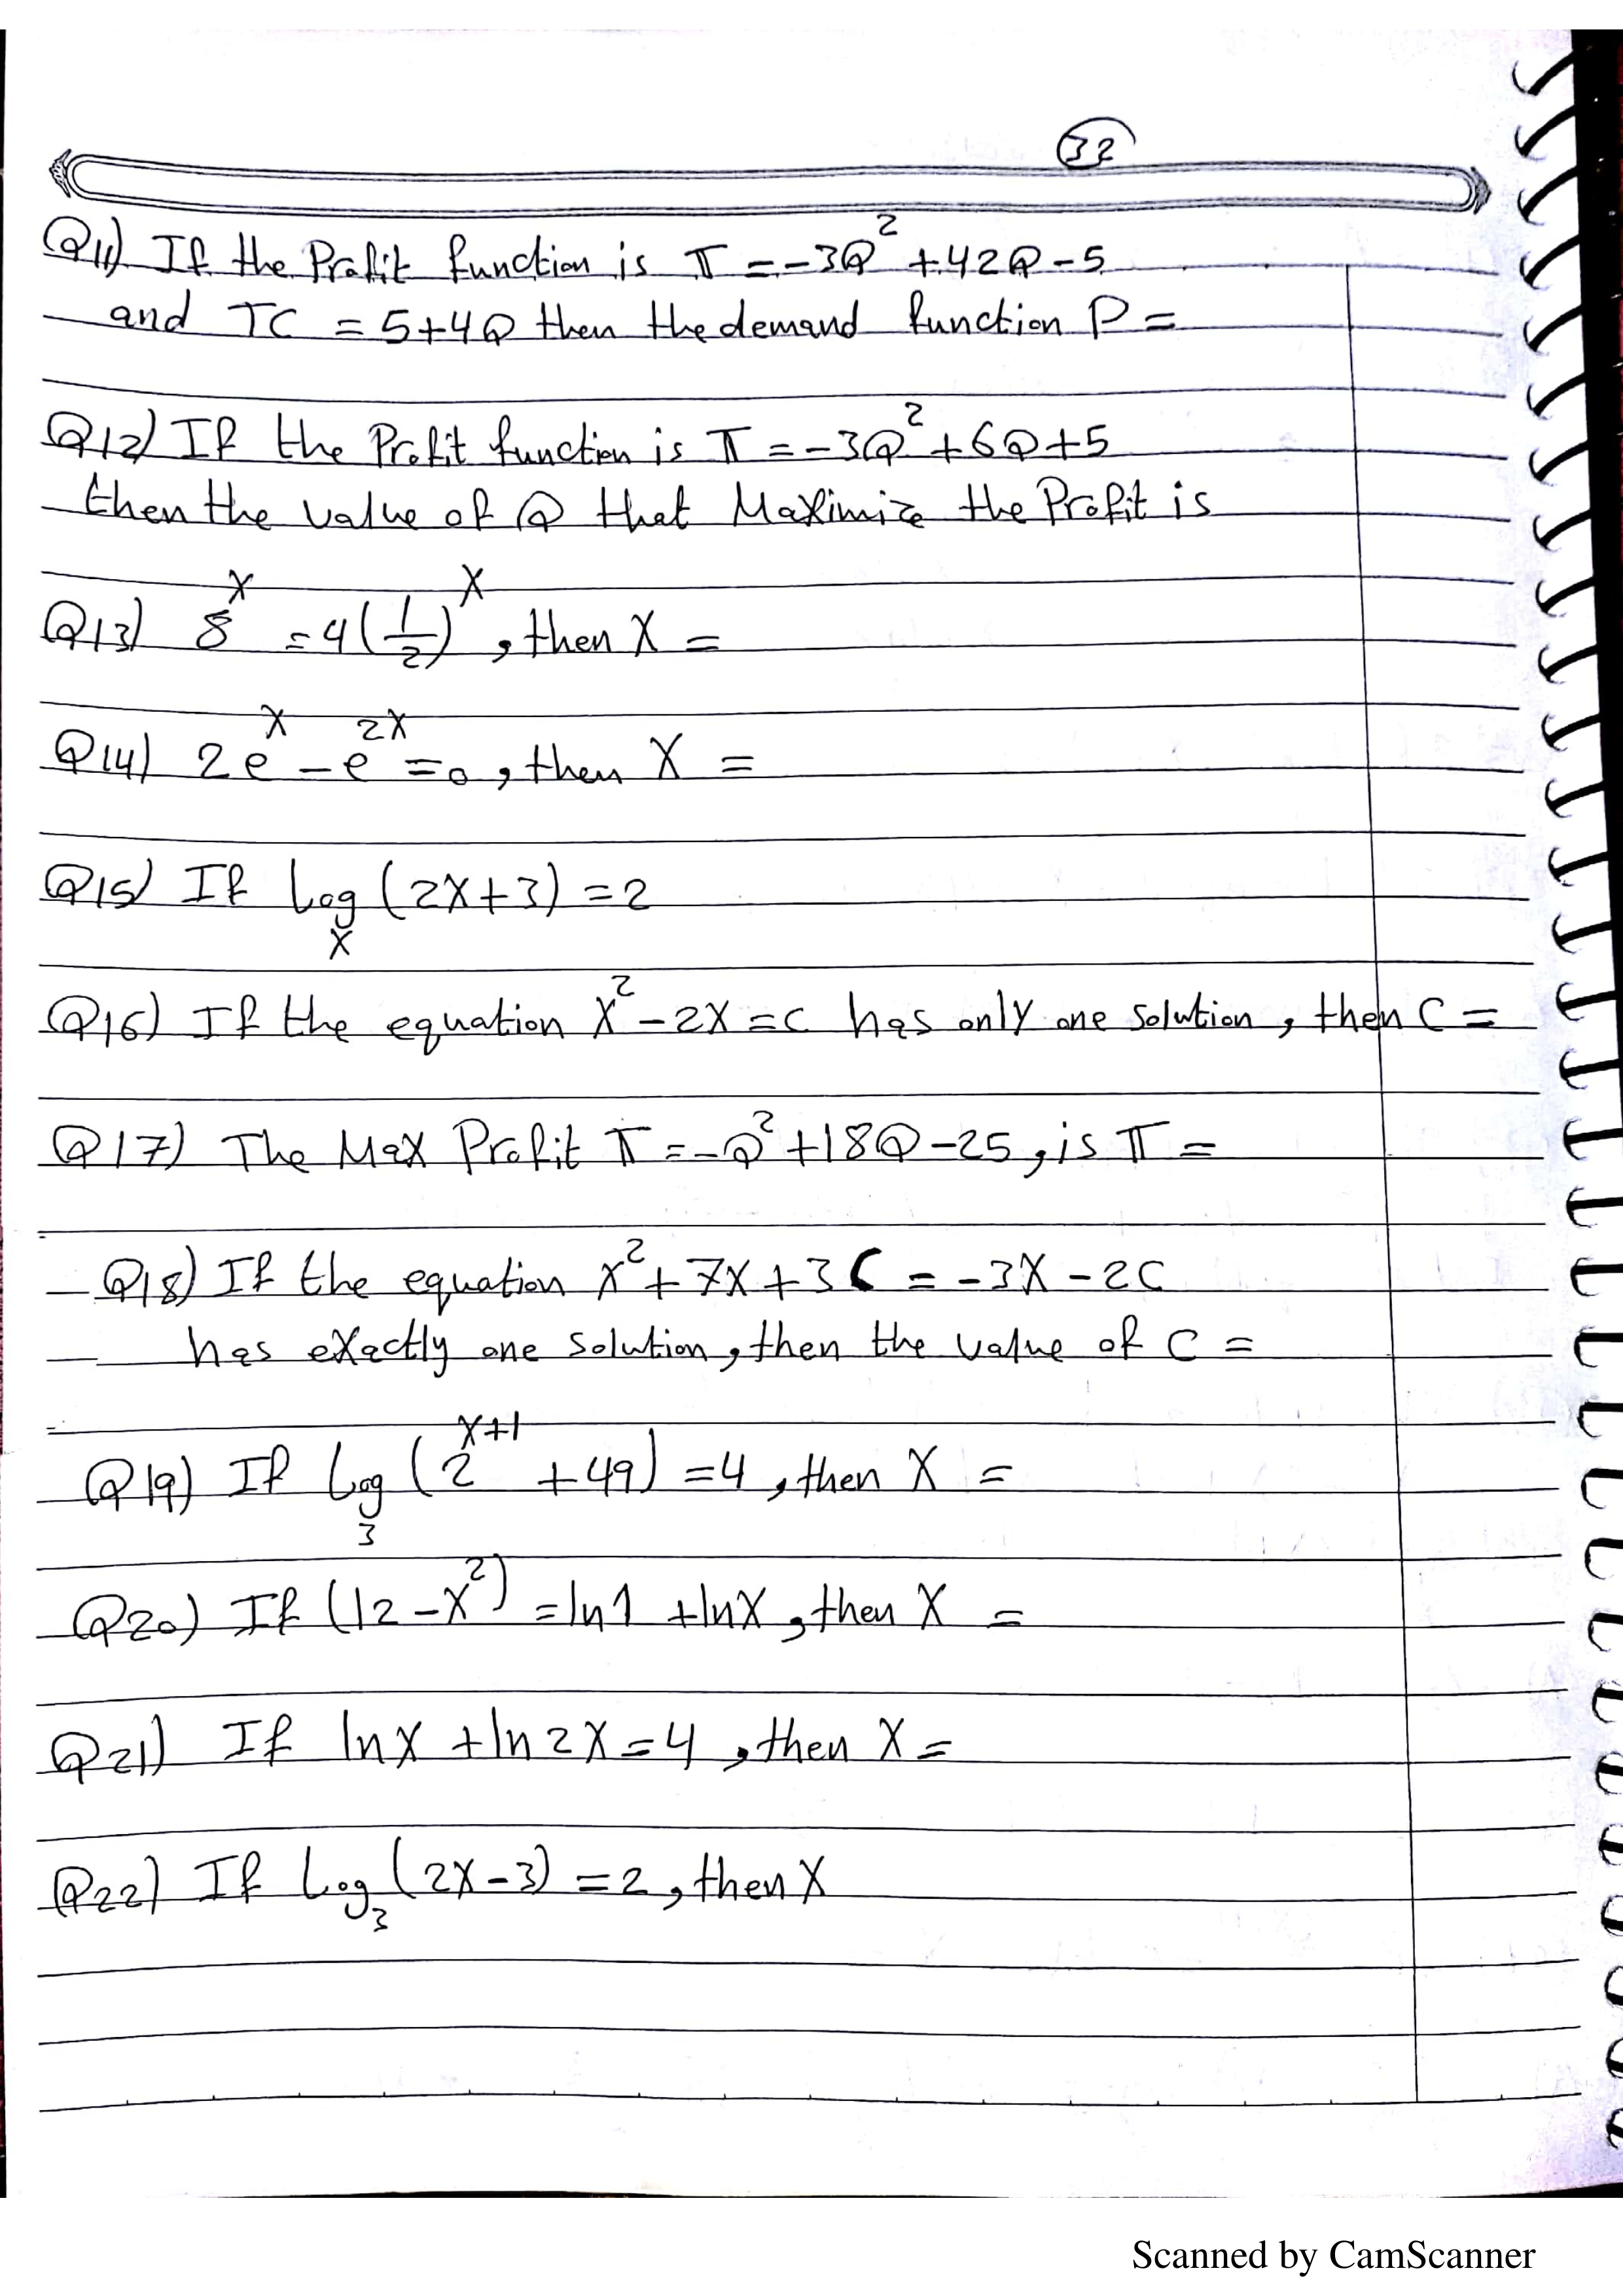 32
Q11) If the Profit function is π = -3Q² + 42Q - 5
and TC = 5+4Q then the demand function P =
Q12) If the Profit function is π = -3Q² + 6Q + 5
then the value of Q that Maximize the Profit is
Q13) 8^x = 4(1/2)^x, then X =
Q14) 2e^x - e^2x = 0, then X =
Q15) If Log_x (2X+3) = 2
Q16) If the equation X² - 2X = C has only one solution, then C =
Q17) The Max Profit π = -Q² + 18Q - 25, is π =
Q18) If the equation X² + 7X + 3C = -3X - 2C
has exactly one solution, then the value of C =
Q19) If Log_3 (2^x+1 + 49) = 4, then X =
Q20) If (12 - X²) = ln1 + lnX, then X =
Q21) If lnX + ln2X = 4, then X =
Q22) If Log_3 (2X - 3) = 2, then X
Scanned by CamScanner